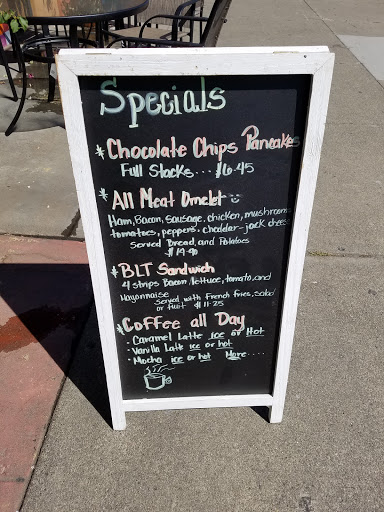 Specials
* Chocolate Chips Pancakes
Full Stacks... $10.45
* All Meat Omelet
Ham, Bacon, Sausage, chicken, mushrooms
tomatoes, peppers. cheddar-jack cheese
Served Bread, and Potatoes
* BLT Sandwich
4 strips Bacon, lettuce, tomato, and
Mayonnaise
Served with French fries, Salad
or fruit $11.25
* Coffee all Day
- Caramel Latte ice or Hot
- Vanilla Latte ice or hot
- Mocha ice or hot More....